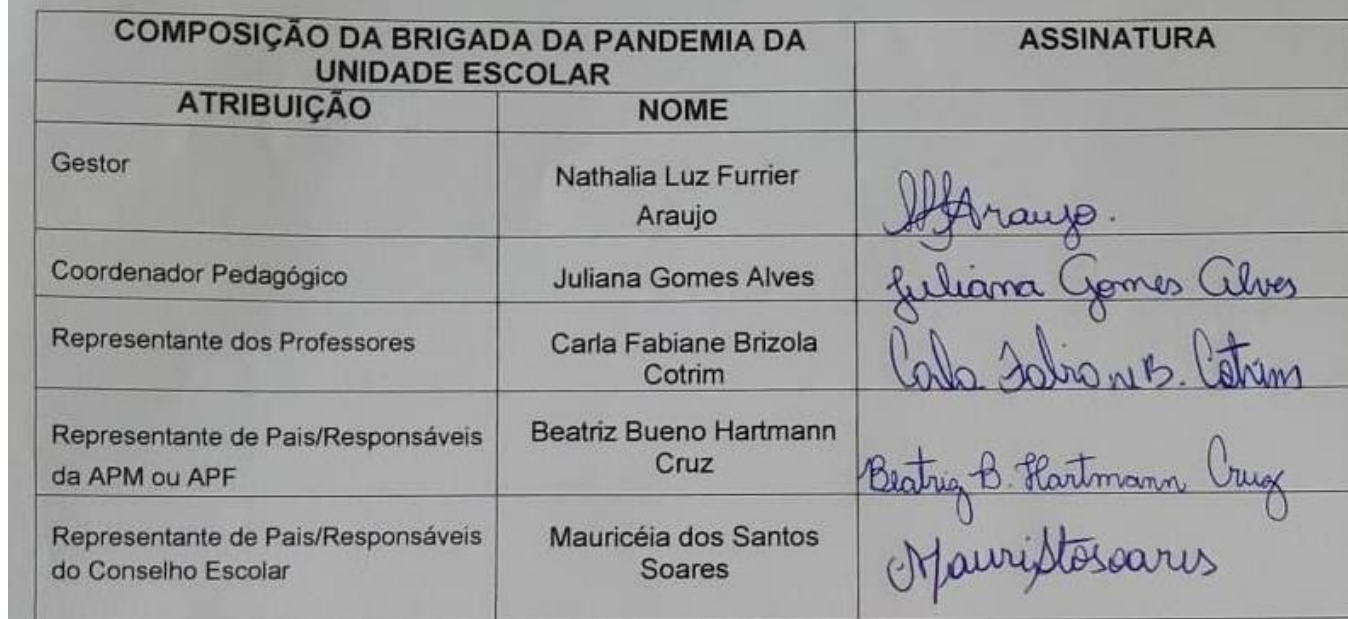 COMPOSIÇÃO DA BRIGADA DA PANDEMIA DA
UNIDADE ESCOLAR
ASSINATURA
ATRIBUIÇÃO
NOME
Gestor
Nathalia Luz Furrier
Araujo
Araujo.
Coordenador Pedagógico
Juliana Gomes Alves
Juliana Gomes Alves
Representante dos Professores
Carla Fabiane Brizola
Cotrim
Carla Fabiane B. Cotrim
Representante de Pais/Responsáveis
da APM ou APF
Beatriz Bueno Hartmann
Cruz
Beatriz B. Hartmann Cruz
Representante de Pais/Responsáveis
do Conselho Escolar
Mauricéia dos Santos
Soares